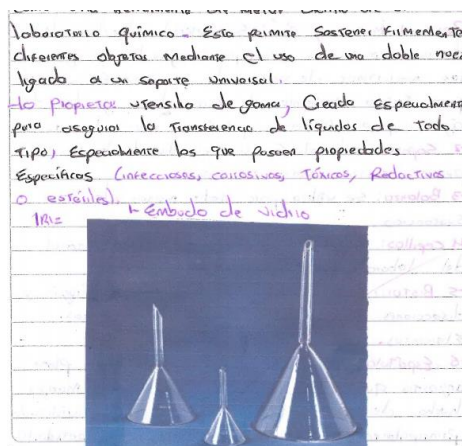 laboratorio químico. Esta permite sostener firmemente
diferentes objetos mediante el uso de una doble nuez
ligado a un soporte universal.
la propieta: utensilio de goma, Creado especialmente
para asegurar la transferencia de líquidos de todo
tipo, especialmente los que poseen propiedades
Específicas (infecciosos, corrosivos, Tóxicos, Radactivos
o estériles).
1- Embudo de vidrio